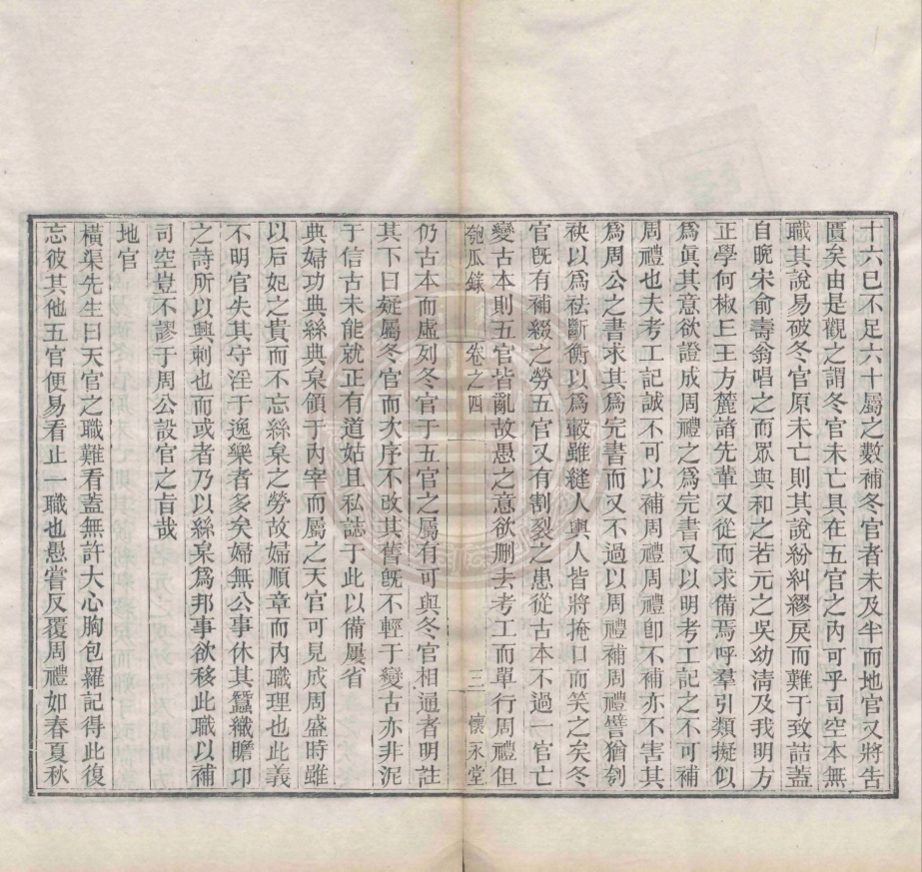 十六已不足六十屬之數補冬官者未及半而地官又將告
匱矣由是觀之謂冬官未亡具在五官之內可乎司空本無
職其說易破冬官原未亡則其說紛糾繆戾而難于致詰蓋
自晚宋俞壽翁唱之而眾與和之若元之吳幼清及我明方
正學何椒王王方麓諸先輩又從而求備焉呼羣引類擬似
為眞其意欲證成周禮之為完書又以明考工記之不可補
周禮也夫考工記誠不可以補周禮周禮卽不補亦不害其
為周公之書求其為完書而又不過以周禮補周禮譬猶刳
袂以為袪斷衡以為轂雖縫人輿人皆將掩口而笑之矣冬
官旣有補綴之勞五官又有割裂之患從古本不過一官亡
變古本則五官皆亂故愚之意欲刪去考工而單行周禮但
匏瓜錄 卷之四 三 懷永堂
仍古本而虛列冬官于五官之屬有可與冬官相通者明註
其下曰疑屬冬官而次序不改其舊旣不輕于變古亦非泥
于信古未能就正有道姑且私誌于此以備屢省
典婦功典絲典枲領于內宰而屬之天官可見成周盛時雖
以后妃之貴而不忘絲枲之勞故婦順章而內職理也此義
不明官失其守淫于逸樂者多矣婦無公事休其蠶織瞻卬
之詩所以興刺也而或者乃以絲枲為邦事欲移此職以補
司空豈不謬于周公設官之旨哉
地官
橫渠先生曰天官之職難看蓋無許大心胸包羅記得此復
忘彼其他五官便易看止一職也愚嘗反覆周禮如春夏秋